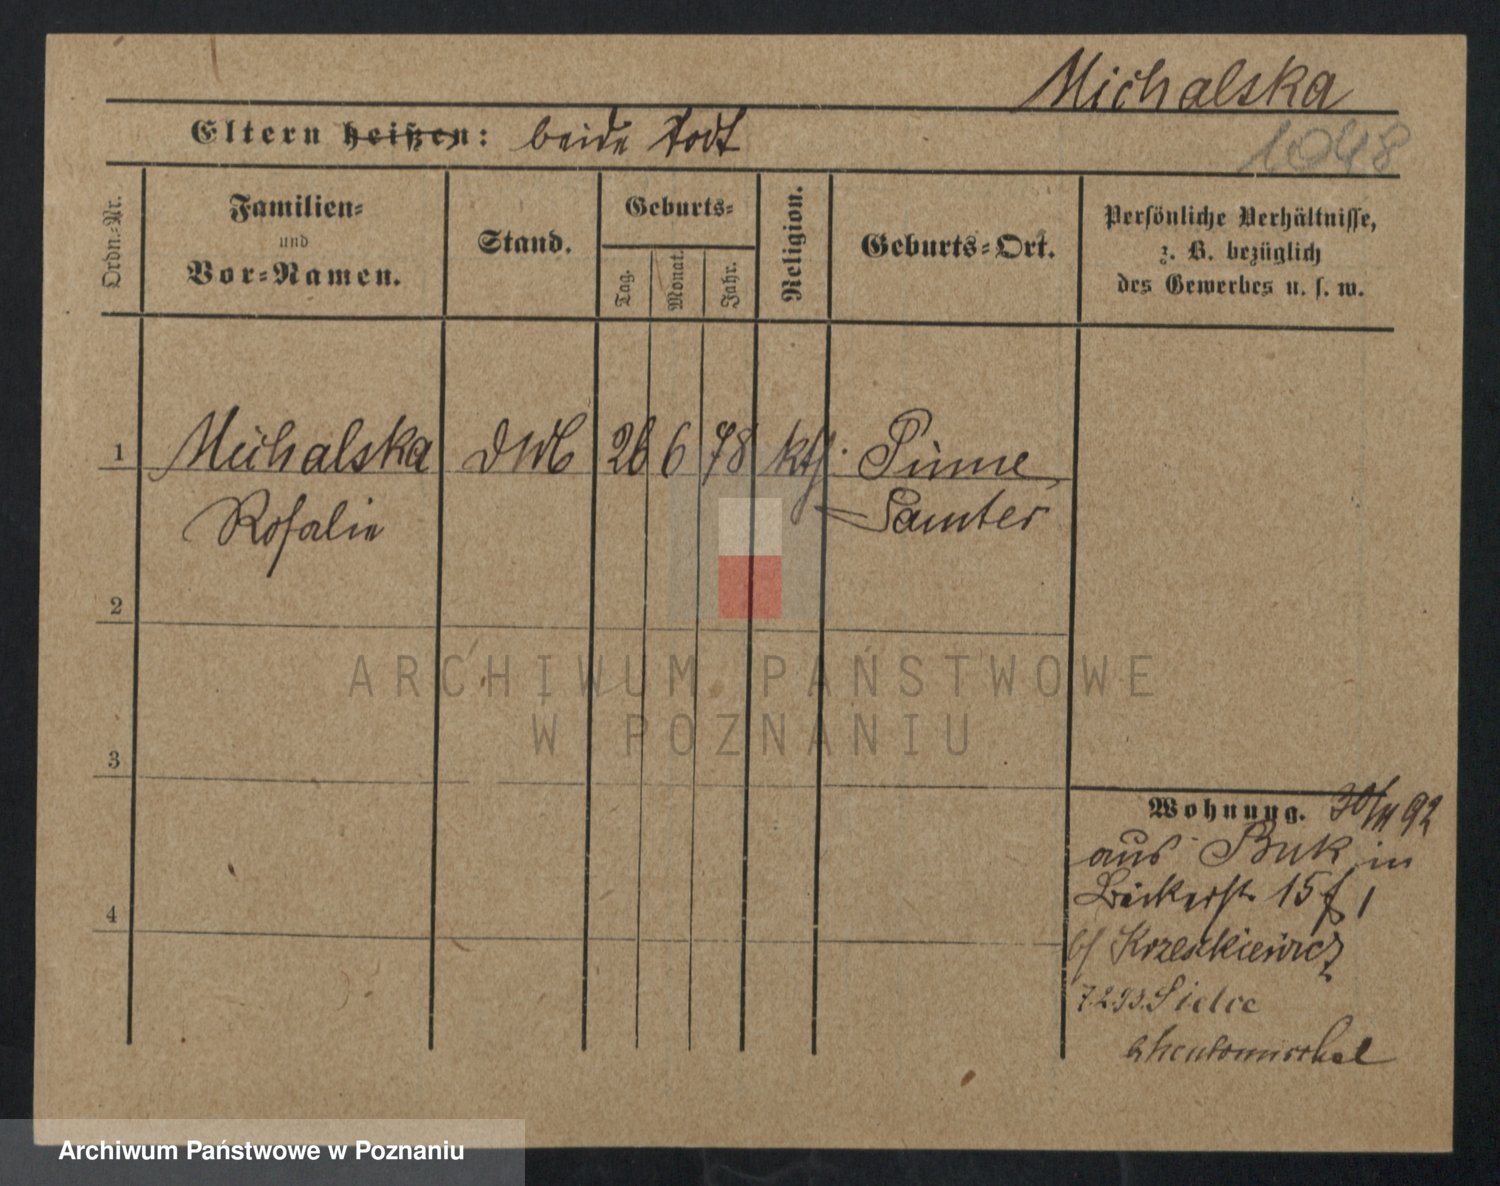 Michalska
1048
Eltern heißen: beide todt
Ordn.-Nr.
Familien-
und
Vor-Namen.
Stand.
Geburts-
Tag.
Monat.
Jahr.
Religion.
Geburts-Ort.
Persönliche Verhältnisse,
z. B. bezüglich
des Gewerbes u. s. w.
1
Michalska 26 6 78 kth. Pinne
Rosalie Samter
2
ARCHIWUM PAŃSTWOWE
W POZNANIU
3
Wohnung. 92
aus Buk in
Bäckerstr. 15
b/ Krzeskiewicz
7.2.93. Sielce
4
Archiwum Państwowe w Poznaniu